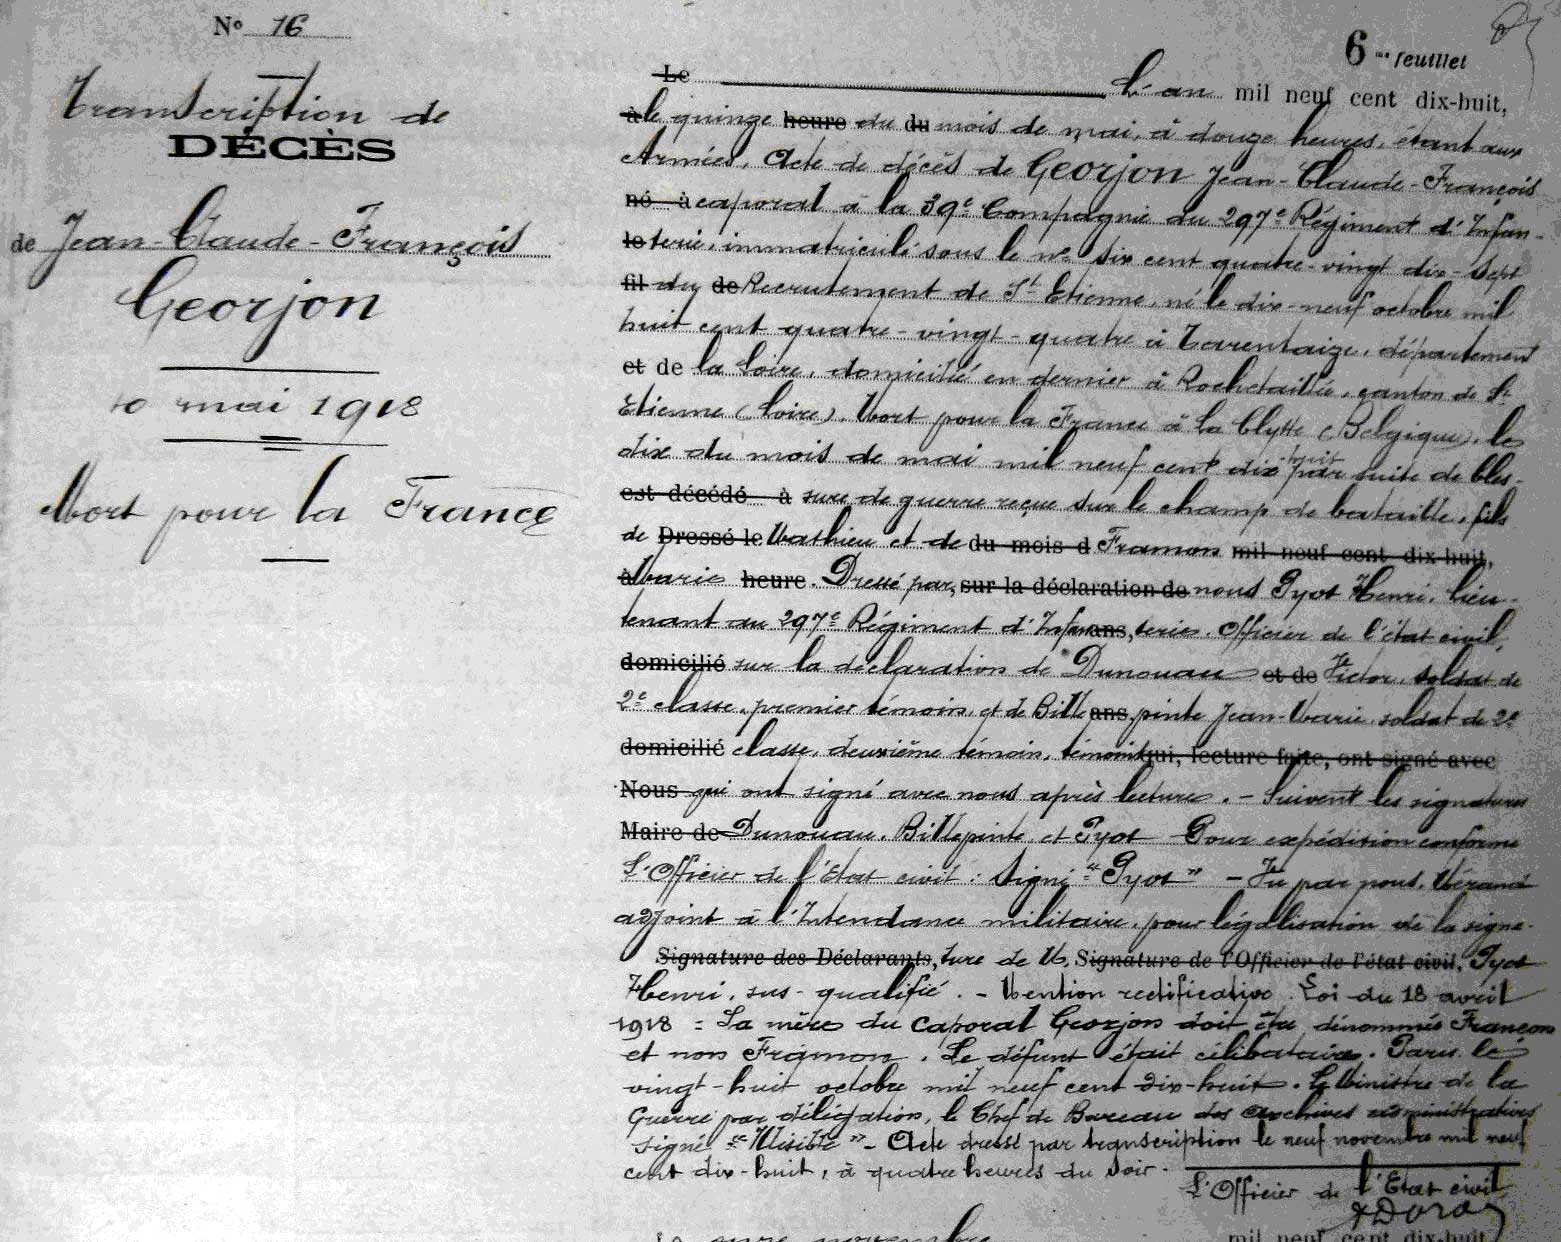 No 16
6 me feuillet
Transcription de
DÉCÈS
de Jean-Claude-François
Georjon
10 mai 1918
Mort pour la France
Le L'an mil neuf cent dix-huit,
à le quinze heure du du mois de mai, à douze heures, étant aux
Armées. Acte de décès de Georjon Jean-Claude-François
né à caporal à la 39e Compagnie du 297e Régiment d'Infan-
le terie, immatriculé sous le no six cent quatre-vingt dix-sept
fil du de Recrutement de St Etienne, né le dix-neuf octobre mil
huit cent quatre-vingt-quatre à Tarentaize, département
et de la Loire, domicilié en dernier à Rochetaillée, canton de St
Etienne (Loire). Mort pour la France à La Clytte (Belgique), le
dix du mois de mai mil neuf cent dix huit par suite de bles-
est décédé à sure de guerre reçue sur le champ de bataille, fils
de Dressé le Mathieu et de du mois d Framon mil neuf cent dix-huit,
à Marie heure. Dressé par, sur la déclaration de nous Pyot Henri, lieu-
tenant au 297e Régiment d'Infan ans, terie. Officier de l'état civil,
domicilié sur la déclaration de Dunouau et de Victor, soldat de
2e classe, premier témoin, et de Bille ans, pinte Jean-Marie, soldat de 2e
domicilié classe, deuxième témoin, témoins qui, lecture faite, ont signé avec
Nous qui ont signé avec nous après lecture. - Suivent les signatures
Maire de Dunouau. Billepinte et Pyot Pour expédition conforme
L'Officier de l'Etat civil : Signé "Pyot" - Vu par nous,
adjoint à l'Intendance militaire, pour légalisation de la signa-
Signature des Déclarants, ture de M. Signature de l'Officier de l'état civil, Pyot
Henri, sus-qualifié. - Mention rectificative Loi du 18 avril
1918 = La mère du caporal Georjon doit être dénommée Françon
et non Framon. Le défunt était célibataire. Paris le
vingt-huit octobre mil neuf cent dix-huit. Le Ministre de la
Guerre par délégation, le Chef de Bureau des archives administratives
signé "Illisible" - Acte dressé par transcription le neuf novembre mil neuf
cent dix-huit, à quatre heures du soir.
L'Officier de l'Etat civil,
novembre
mil neuf cent dix-huit